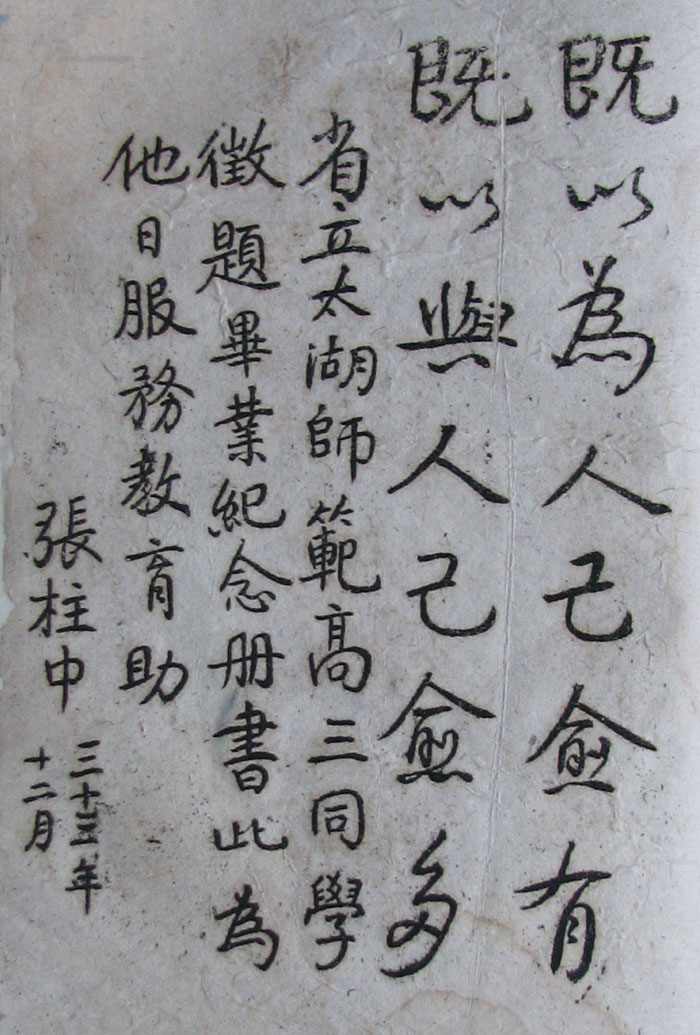 既以為人己愈有
既以與人己愈多
省立太湖師範高三同學
徵題畢業紀念册書此為
他日服務教育助
張柱中
三十三年
十二月